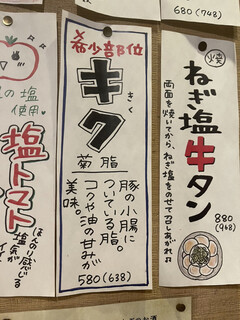 680(748)
希少部位
キク
きく
菊脂
豚の小腸に
ついている脂。
コクや油の甘みが
美味。
580(638)
焼
ねぎ塩牛タン
両面を焼いてから、ねぎ塩をのせて召しあがれ♫
880
(968)
の塩
使用。
塩トマト
ほんのり感じる
塩気が